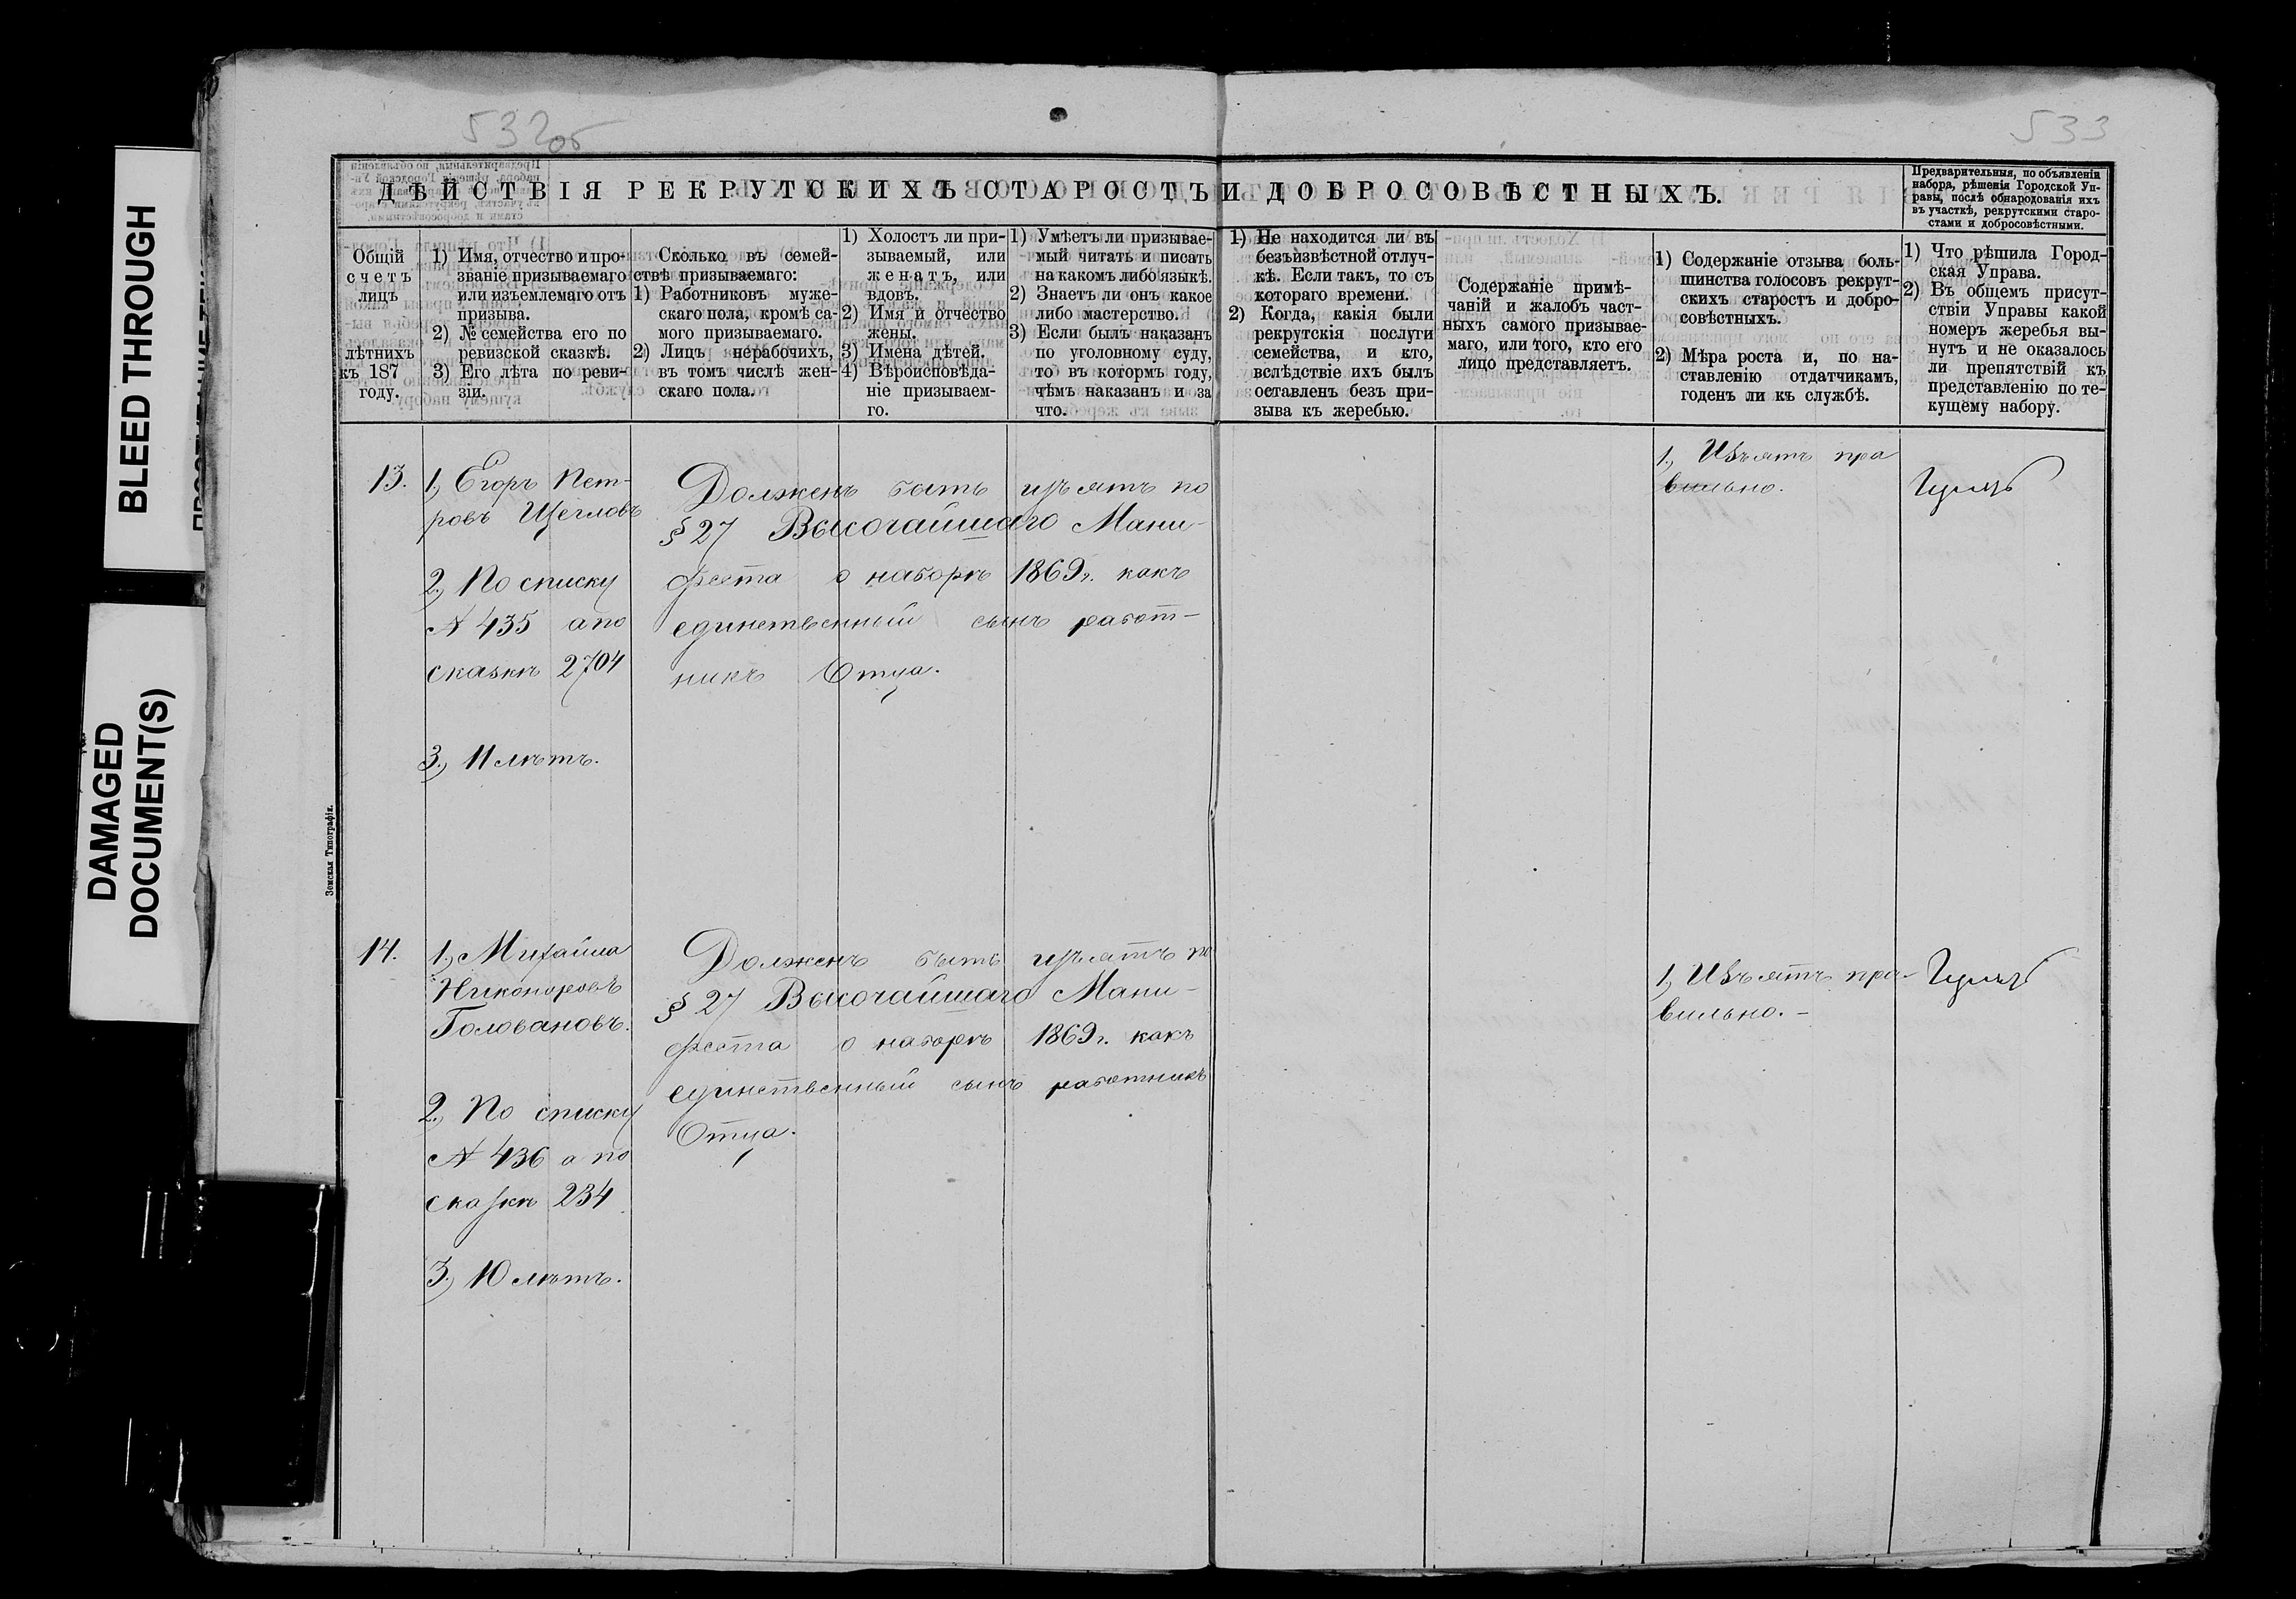 532об
533
BLEED THROUGH
DAMAGED
DOCUMENT(S)
Земская Типографія.
ДѢЙСТВІЯ РЕКРУТСКИХЪ СТАРОСТЪ И ДОБРОСОВѢСТНЫХЪ.
Предварительныя, по объявленіи
набора, рѣшенія Городской Уп-
равы, послѣ обнародованія ихъ
въ участкѣ, рекрутскими старо-
стами и добросовѣстными.
Общій
счетъ
лицъ
лѣтнихъ
къ 187
году.
1) Имя, отчество и про-
званіе призываемаго
или изъемлемаго отъ
призыва.
2) № семейства его по
ревизской сказкѣ.
3) Его лѣта по реви-
зіи.
Сколько въ семей-
ствѣ призываемаго:
1) Работниковъ муже-
скаго пола, кромѣ са-
мого призываемаго.
2) Лицъ нерабочихъ,
въ томъ числѣ жен-
скаго пола.
1) Холостъ ли при-
зываемый, или
женатъ, или
вдовъ.
2) Имя и отчество
жены.
3) Имена дѣтей.
4) Вѣроисповѣда-
ніе призываем-
го.
1) Умѣетъ ли призывае-
мый читать и писать
на какомъ либо языкѣ.
2) Знаетъ ли онъ какое
либо мастерство.
3) Если былъ наказанъ
по уголовному суду,
то въ которм году,
чѣмъ наказанъ и за
что.
1) Не находится ли въ
безъизвѣстной отлуч-
кѣ. Если такъ, то съ
котораго времени.
2) Когда, какія были
рекрутскія послуги
семейства, и кто,
вслѣдствіе ихъ былъ
оставленъ безъ при-
зыва къ жеребью.
Содержаніе примѣ-
чаній и жалобъ част-
ныхъ самого призывае-
маго, или того, кто его
лицо представляетъ.
1) Содержаніе отзыва боль-
шинства голосовъ рекрут-
скихъ старостъ и добро-
совѣстныхъ.
2) Мѣра роста и, по на-
ставленію отдатчикамъ,
годенъ ли къ службѣ.
1) Что рѣшила Город-
ская Управа.
2) Въ общемъ присут-
ствіи Управы какой
номеръ жеребья вы-
нутъ и не оказалось
ли препятствій къ
представленію по те-
кущему набору.
13.
1, Егоръ Пет-
ровъ Щегловъ
2, По списку
№ 435 а по
сказкѣ 2704
3, 11 лѣтъ.
Долженъ быть изъятъ по
§ 27 Высочайшаго Мани-
феста о наборѣ 1869г. какъ
единственный сынъ работ-
никъ Отца.
1, Изъятъ пра
вильно.
14.
1, Михайла
Никоноровъ
Головановъ.
2, По списку
№ 436 а по
сказкѣ 234
3, 10 лѣтъ.
Долженъ быть изъятъ по
§ 27 Высочайшаго Мани-
феста о наборѣ 1869г. какъ
единственный сынъ работникъ
Отца.
1, Изъятъ пра-
вильно. -